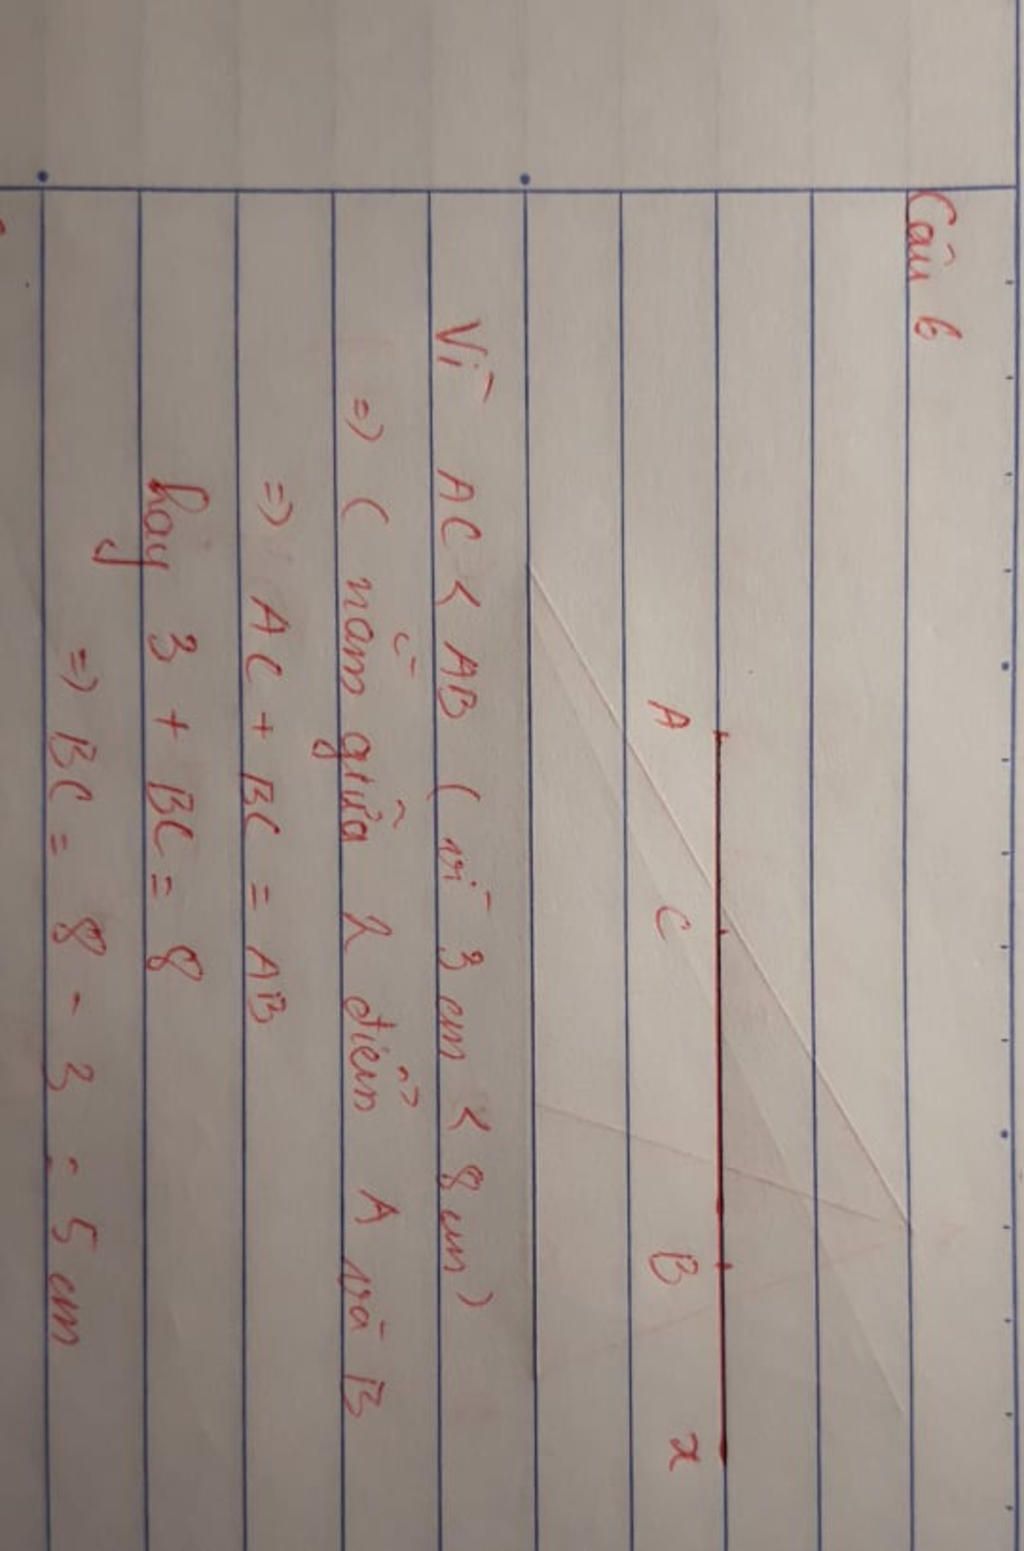 Câu 6
A C B x
Vì AC < AB ( vì 3 cm < 8 cm )
=> C nằm giữa 2 điểm A và B
=> AC + BC = AB
hay 3 + BC = 8
=> BC = 8 - 3 = 5 cm